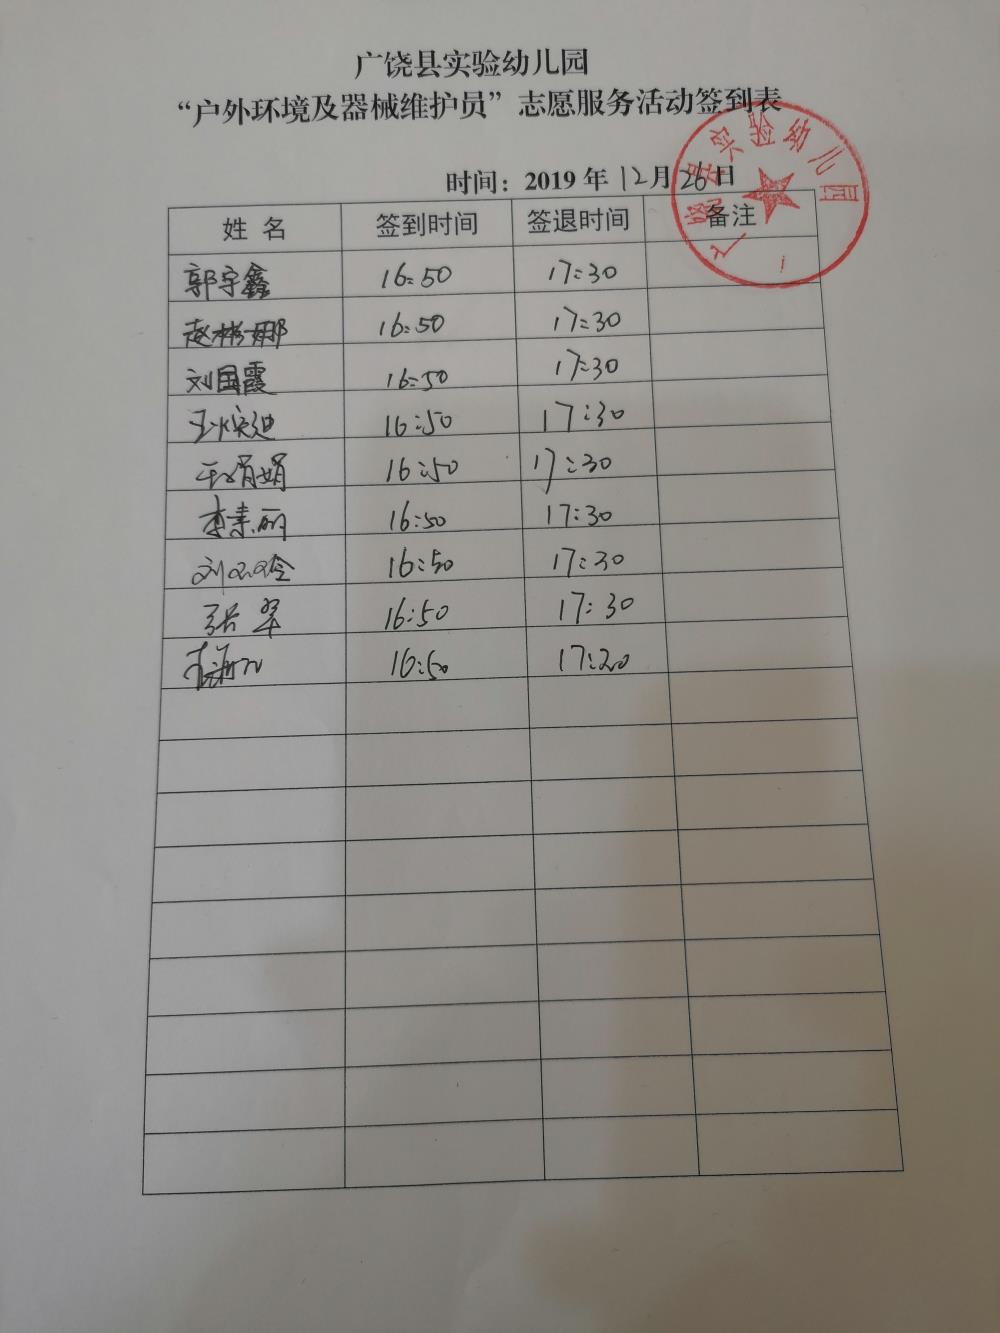 广饶县实验幼儿园
“户外环境及器械维护员”志愿服务活动签到表
广饶县实验幼儿园
时间：2019年12月26日
姓名 签到时间 签退时间 备注
郭宇鑫 16:50 17:30
赵彬娜 16:50 17:30
刘国霞 16:50 17:30
16:50 17:30
娟娟 16:50 17:30
李素丽 16:50 17:30
刘 16:50 17:30
张翠 16:50 17:30
16:50 17:20